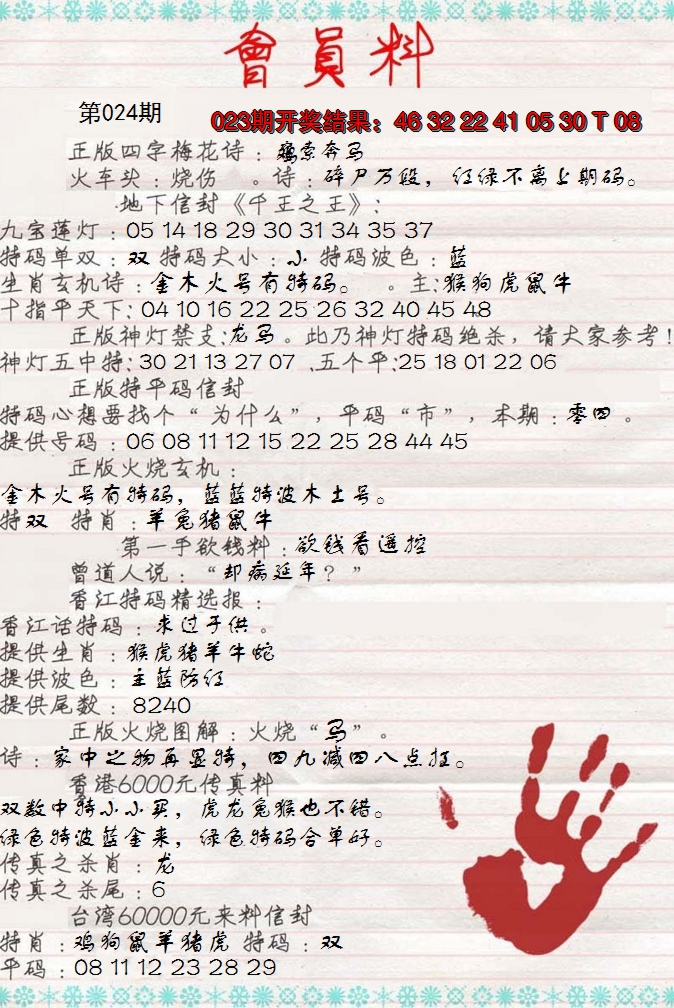 會員料
第024期
023期开奖结果：46 32 22 41 05 30 T 08
正版四字梅花诗：鸡索奔马
火车头：烧伤 。诗：碎尸万段，红绿不离上期码。
地下信封《千王之王》：
九宝莲灯：05 14 18 29 30 31 34 35 37
特码单双：双 特码大小：小 特码波色：蓝
生肖玄机诗：金木火号有特码。 。主：猴狗虎鼠牛
十指平天下：04 10 16 22 25 26 32 40 45 48
正版神灯禁支：龙马。此乃神灯特码绝杀，请大家参考！
神灯五中特：30 21 13 27 07 、五个平：25 18 01 22 06
正版特平码信封
特码心想要找个“为什么”，平码“市”，本期：零四。
提供号码：06 08 11 12 15 22 25 28 44 45
正版火烧玄机：
金木火号有特码，蓝蓝特波木土号。
特双 特肖：羊兔猪鼠牛
第一手欲钱料：欲钱看遥控
曾道人说：“却病延年？”
香江特码精选报：
香江话特码：求过于供。
提供生肖：猴虎猪羊牛蛇
提供波色：主蓝防红
提供尾数：8240
正版火烧图解：火烧“马”。
诗：家中之物再显特，四九减四八点狂。
香港6000元传真料
双数中特小小买，虎龙兔猴也不错。
绿色特波蓝金来，绿色特码合单好。
传真之杀肖：龙
传真之杀尾：6
台湾60000元来料信封
特肖：鸡狗鼠羊猪虎 特码：双
平码：08 11 12 23 28 29